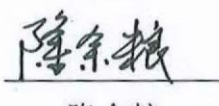 陈余粮